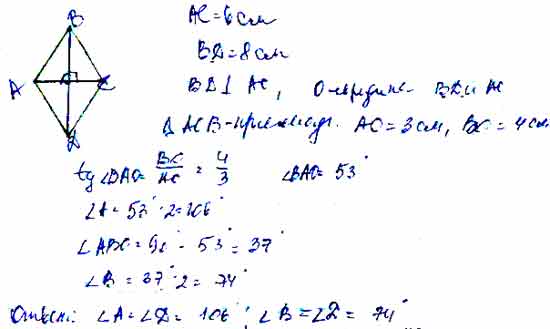 B
A
C
D
AC = 6 см
BD = 8 см
BD ⊥ AC, O-середина BD и AC
Δ AOB-прямоуг. AO = 3 см, BO = 4 см
tg ∠BAO = BO/AO = 4/3 ∠BAO = 53°
∠A = 53°·2 = 106°
∠ABO = 90° - 53° = 37°
∠B = 37°·2 = 74°
Ответ: ∠A = ∠D = 106°; ∠B = ∠D = 74°